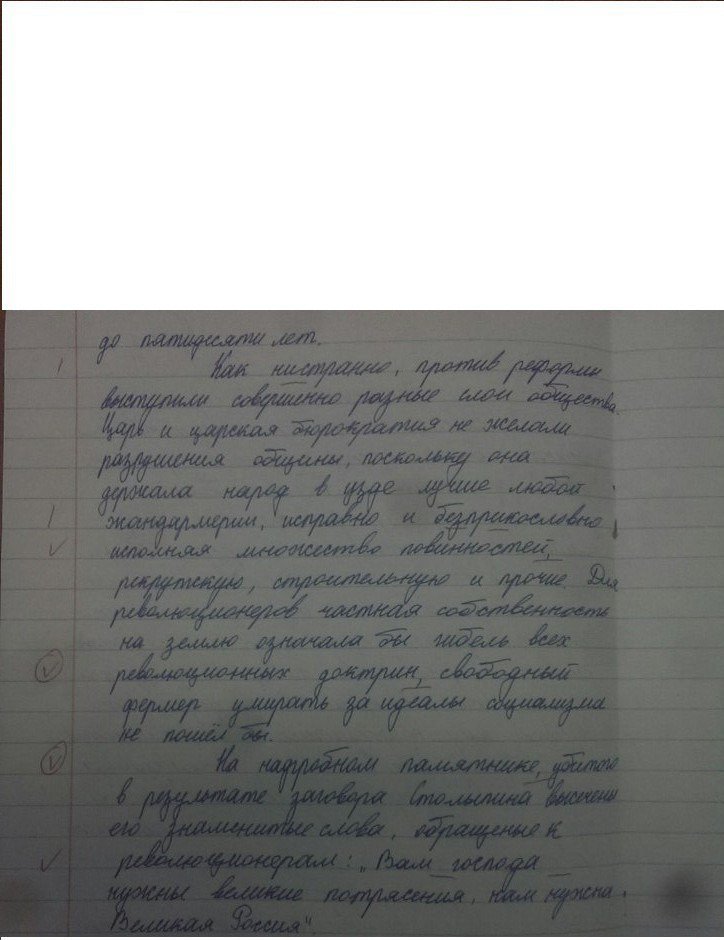 до патидесяти лет.
Как нистранно, против реформы
выступили совершенно разные слои общества.
Царь и царская бюрократия не желали
разрушения общины, поскольку она
держала народ в узде лучше любой
жандармерии, исправно и безприкословно
исполняя множество повинностей,
рекрутскую, строительную и прочие. Для
революционеров частная собственность
на землю означала бы гибель всех
революционных доктрин, свободный
фермер умирать за идеалы социализма
не пошёл бы.
На надгробном памятнике, убитого
в результате заговора Столыпина высечены
его знаменитые слова, обращеные к
революционерам: „Вам господа
нужны великие потрясения, нам нужна
Великая Россия".